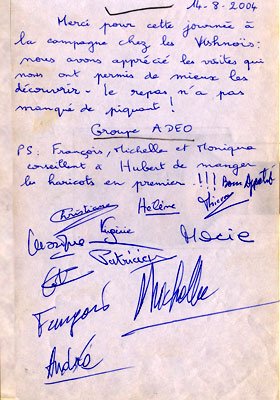 14-8-2004
Merci pour cette journée à
la campagne chez les Vishnoïs:
nous avons apprécié les visites qui
nous ont permis de mieux les
découvrir - le repas n'a pas
manqué de piquant !
Groupe ADEO
PS: François, Michelle et Monique
conseillent à Hubert de manger
les haricots en premier. !!! Bon Appétit
Christiane
Hélène
Virginie
Marie
Patricia
François
Michelle
André